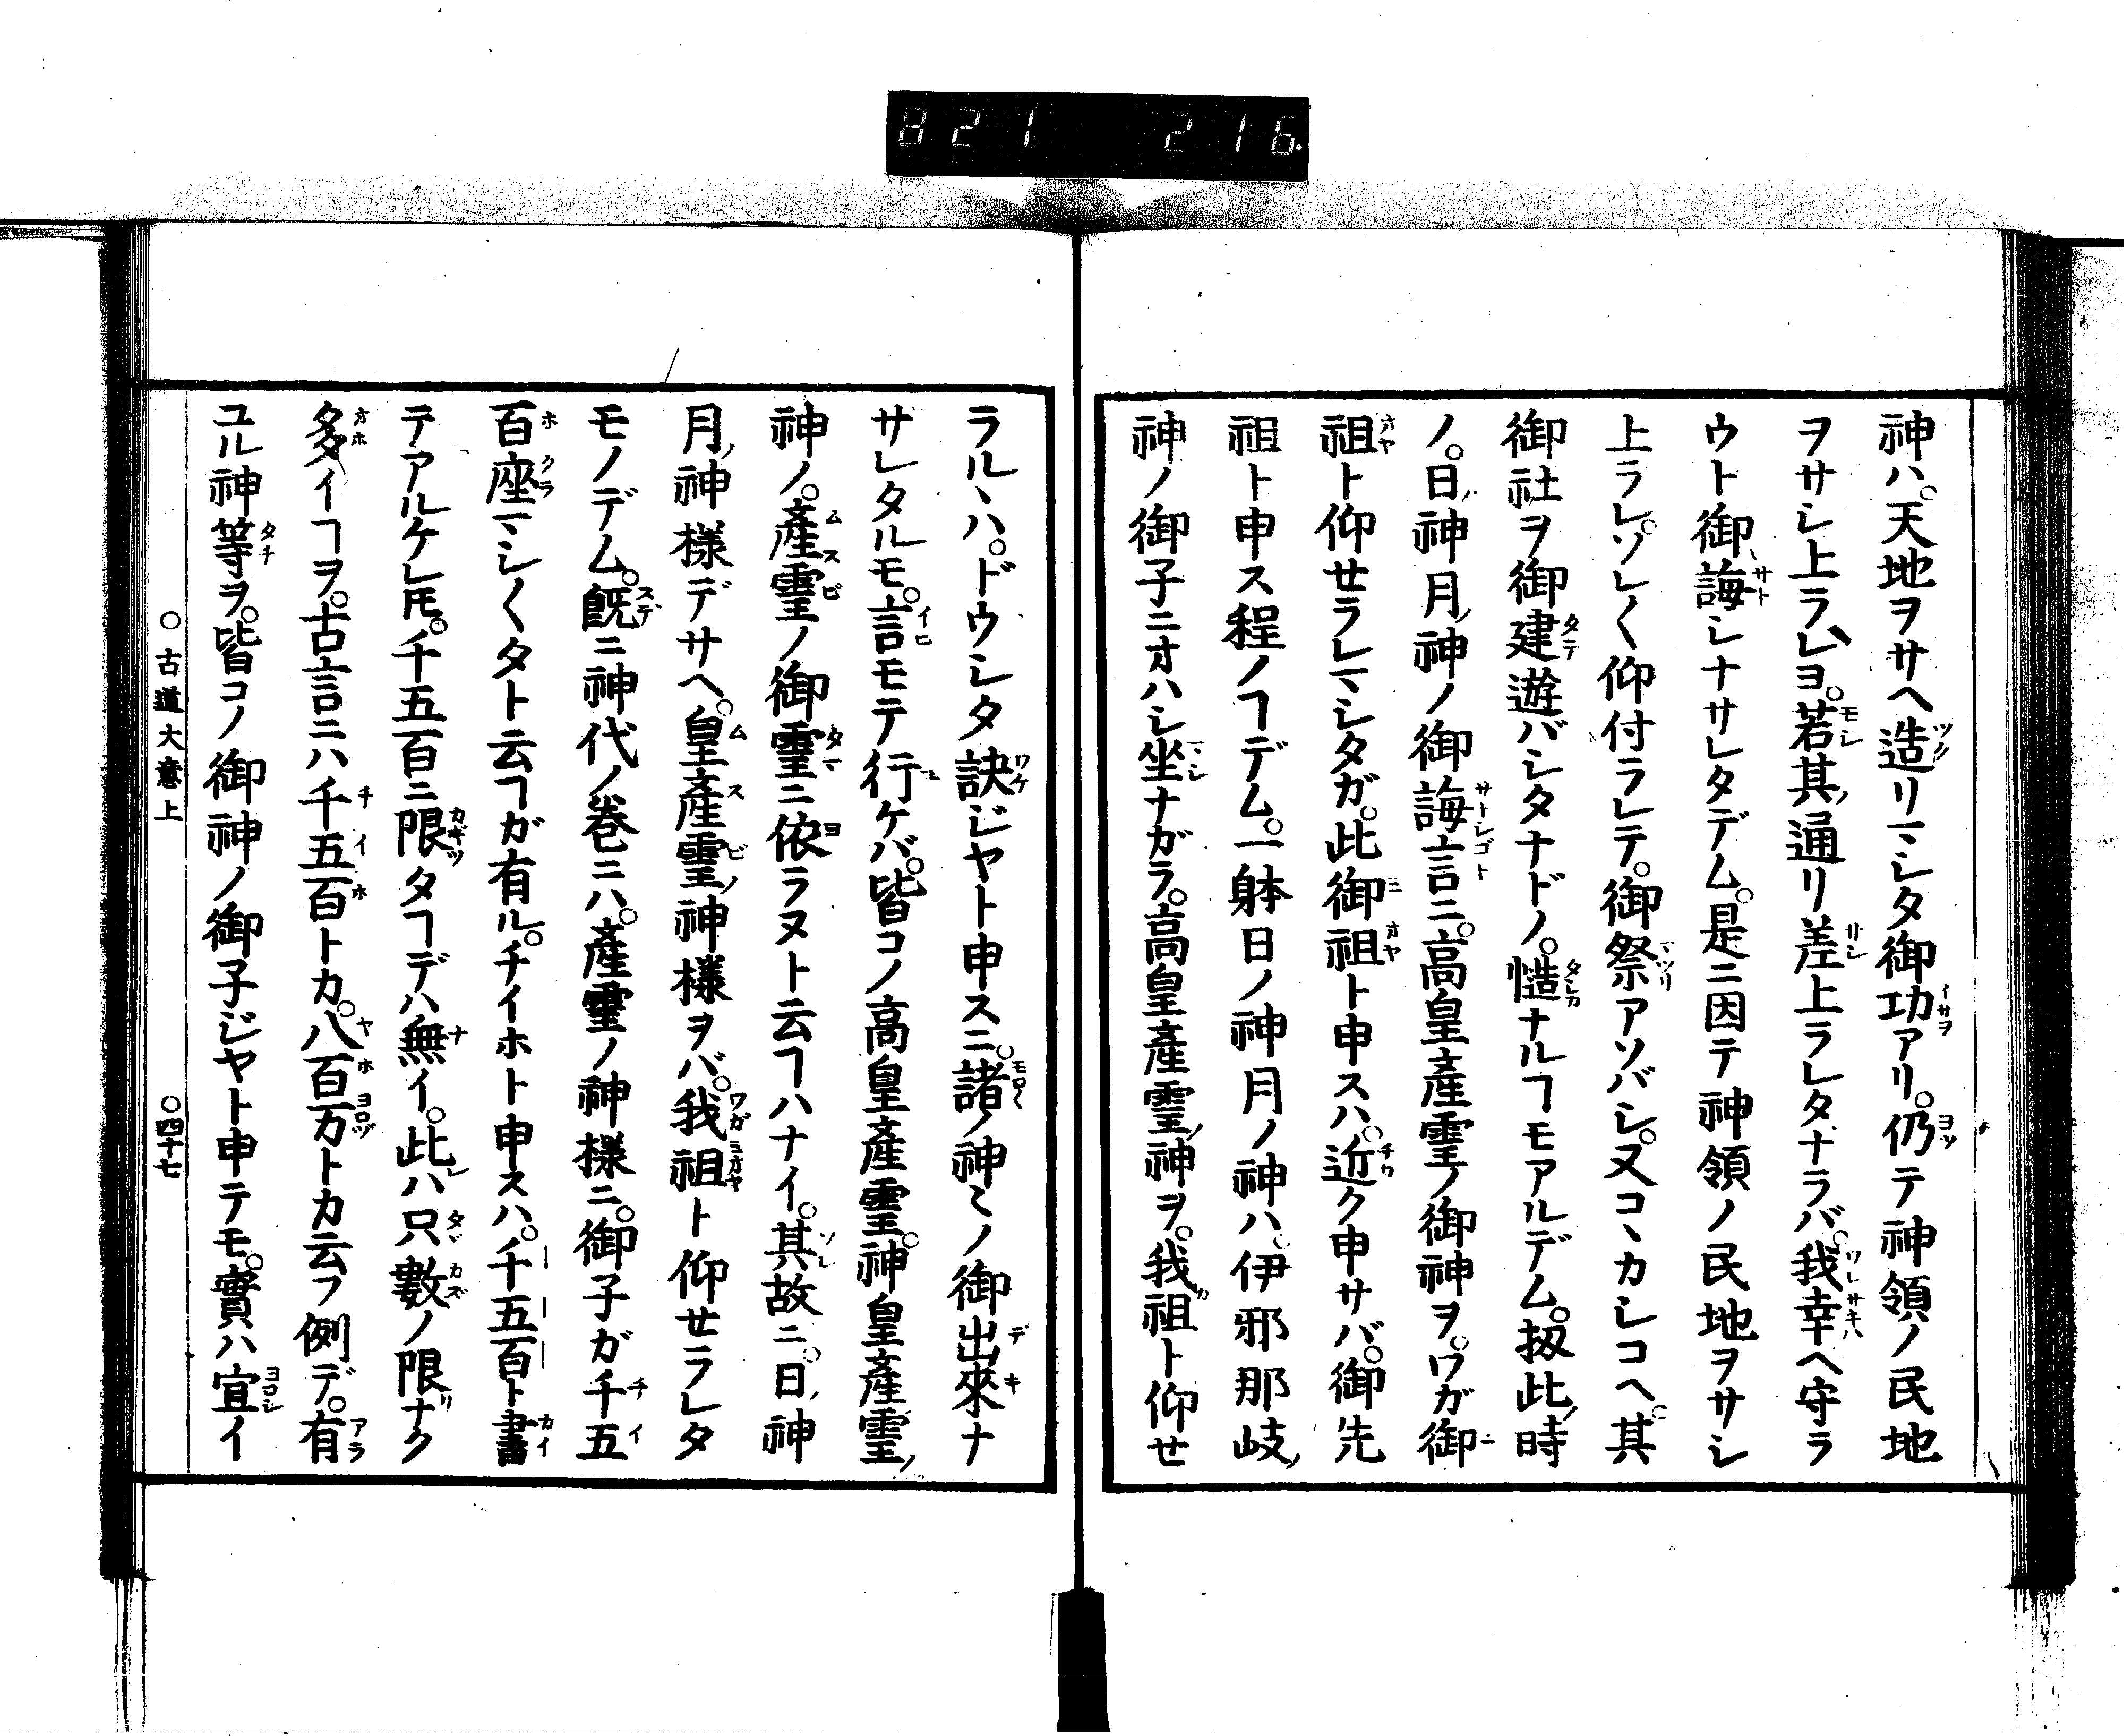 821 216.
神ハ。天地ヲサヘ造リマシタ御功アリ。仍テ神領ノ民地
ヲサシ上ラレヨ。若其ノ通リ差上ラレタナラバ。我幸ヘ守ラ
ウト御誨シナサレタデム。是ニ因テ神領ノ民地ヲサシ
上ラレ。ソレ〱仰付ラレテ。御祭アソバシ。又コヽカシコヘ。其
御社ヲ御建遊バシタナドノ。慥ナルヿモアルデム。扨此ノ時
ノ。日ノ神月ノ神ノ御誨言ニ。高皇產霊ノ御神ヲ。ワガ御
祖ト仰せラレマシタガ。此御祖ト申スハ。近ク申サバ。御先
祖ト申ス程ノヿデム。一躰日ノ神月ノ神ハ。伊邪那岐ノ
神ノ御子ニオハシ坐ナガラ。高皇產霊ノ神ヲ。我祖ト仰せ
ラルヽハ。ドウシタ訣ジヤト申スニ。諸ノ神〻ノ御出來ナ
サレタルモ。言モテ行ケバ。皆コノ高皇產霊ノ神。神皇產霊ノ
神ノ。產霊ノ御霊ニ依ラヌト云ヿハナイ。其故ニ。日ノ神
月ノ神様デサヘ。皇產霊ノ神様ヲバ。我祖ト仰せラレタ
モノデム。既ニ神代ノ巻ニハ。產霊ノ神様ニ。御子ガ千五
百座マシ〱タト云ヿガ有ル。チイホト申スハ。千五百ト書
テアルケレ𪜈。千五百ニ限タヿデハ無イ。此ハ只數ノ限ナク
多イヿヲ。古言ニハ千五百トカ。八百万トカ云フ例デ。有
ユル神等ヲ。皆コノ御神ノ御子ジヤト申テモ。實ハ宜イ
○古道大意上 ○四十七